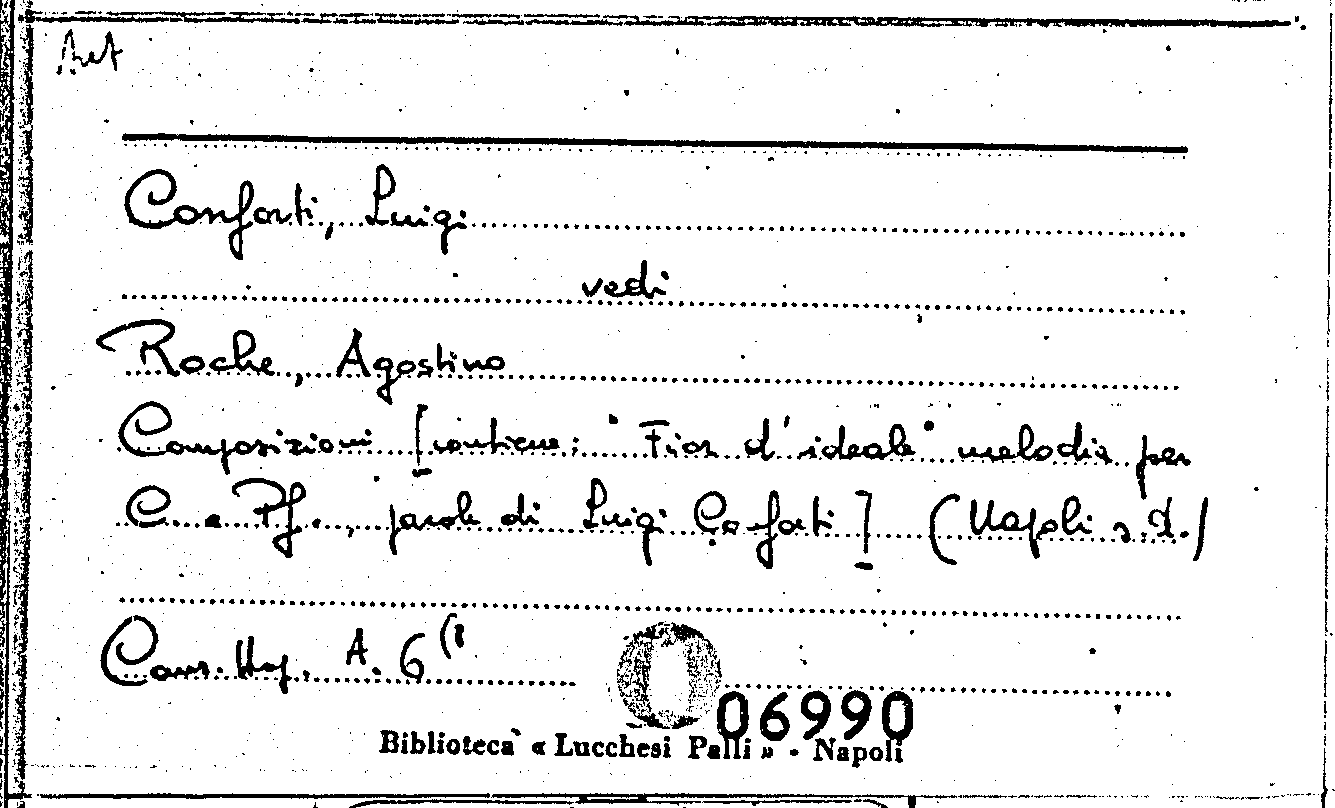 Conforti, Luigi
vedi
Roche, Agostino
Composizioni [contiene: "Fior d'ideale" melodia per
C. e Pf., parole di Luigi Conforti] (Napoli s.d.)
Cons. Nap. A. 6 (1
06990
Biblioteca « Lucchesi Palli » - Napoli